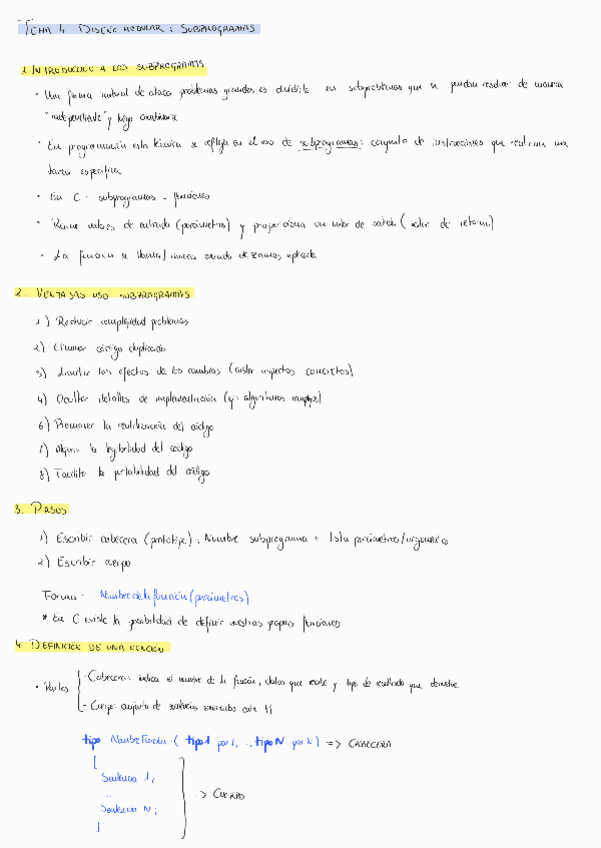 TEMA 4 DISEÑO MODULAR: SUBPROGRAMAS
1. INTRODUCCIÓN A LOS SUBPROGRAMAS
• Una forma natural de atacar problemas grandes es dividirlo en subproblemas que se puedan resolver de manera
"independiente" y luego combinarse
• En programación esta técnica se refleja en el uso de subprogramas: conjunto de instrucciones que realizan una
tarea específica
• En C: subprogramas - funciones
• Reciben valores de entrada (parámetros) y proporciona un valor de salida (valor de retorno)
• La función se llama/invoca cuando deseamos aplicarla
2. VENTAJAS USO SUBPROGRAMAS
1) Reducir complejidad problemas
2) Eliminar código duplicado
3) Limitar los efectos de los cambios (aislar aspectos CONCRETOS)
4) Ocultar detalles de implementación (ej: algoritmos)
6) Promover la reutilización del código
7) Mejora la legibilidad del código
8) Facilita la portabilidad del código
3. PASOS
1) Escribir cabecera (prototipo): Nombre subprograma + lista parámetros/argumentos
2) Escribir cuerpo
Forma: Nombre de la función (parámetros)
* En C existe la posibilidad de definir nuestras propias funciones
4. DEFINICIÓN DE UNA FUNCIÓN
• Partes
- Cabecera: indica el nombre de la función, datos que recibe y tipo de resultado que devuelve
- Cuerpo: conjunto de sentencias encerradas entre {}
tipo NombreFuncion (tipo1 par1, ..., tipoN parN) => CABECERA
{
Sentencia 1;
...
Sentencia N;
}
=> CUERPO